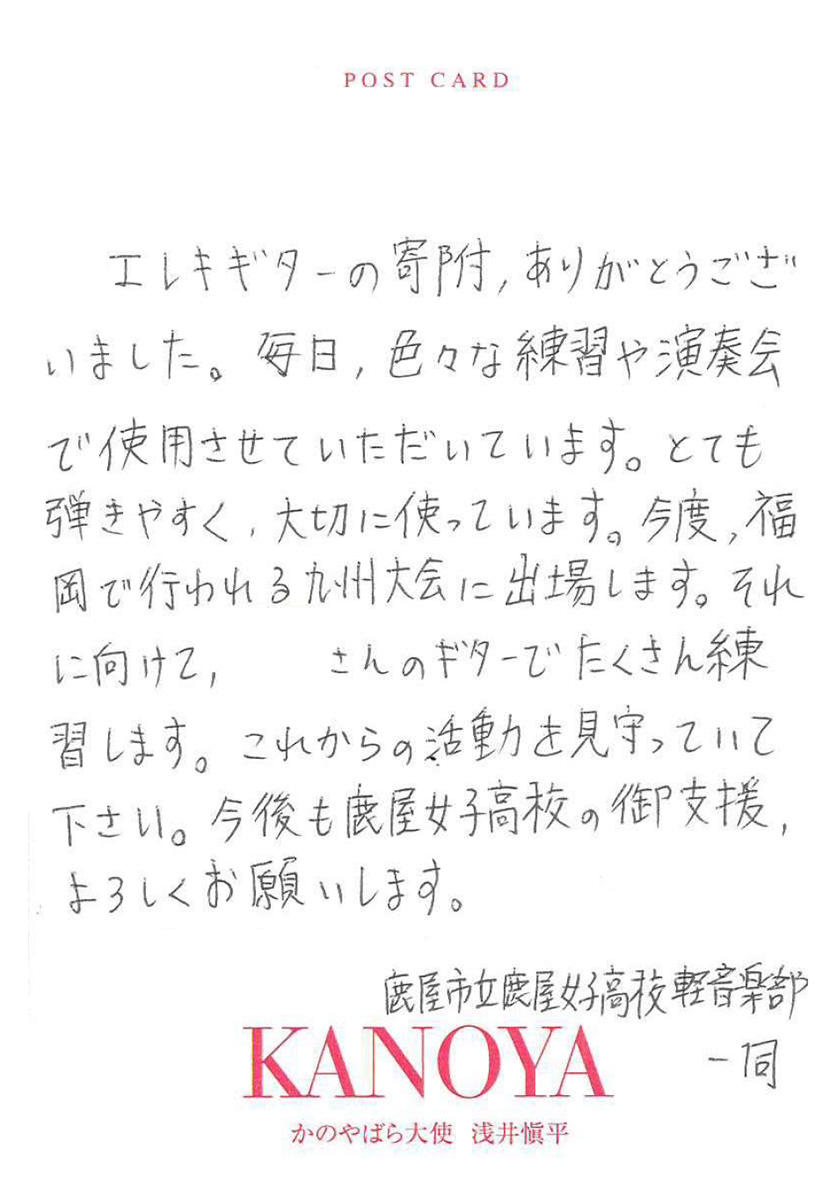 POST CARD
エレキギターの寄附，ありがとうござ
いました。毎日，色々な練習や演奏会
で使用させていただいています。とても
弾きやすく，大切に使っています。今度，福
岡で行われる九州大会に出場します。それ
に向けて，　　　さんのギターでたくさん練
習します。これからの活動を見守っていて
下さい。今後も鹿屋女子高校の御支援，
よろしくお願いします。
鹿屋市立鹿屋女子高校軽音楽部
一同
KANOYA
かのやばら大使 浅井愼平